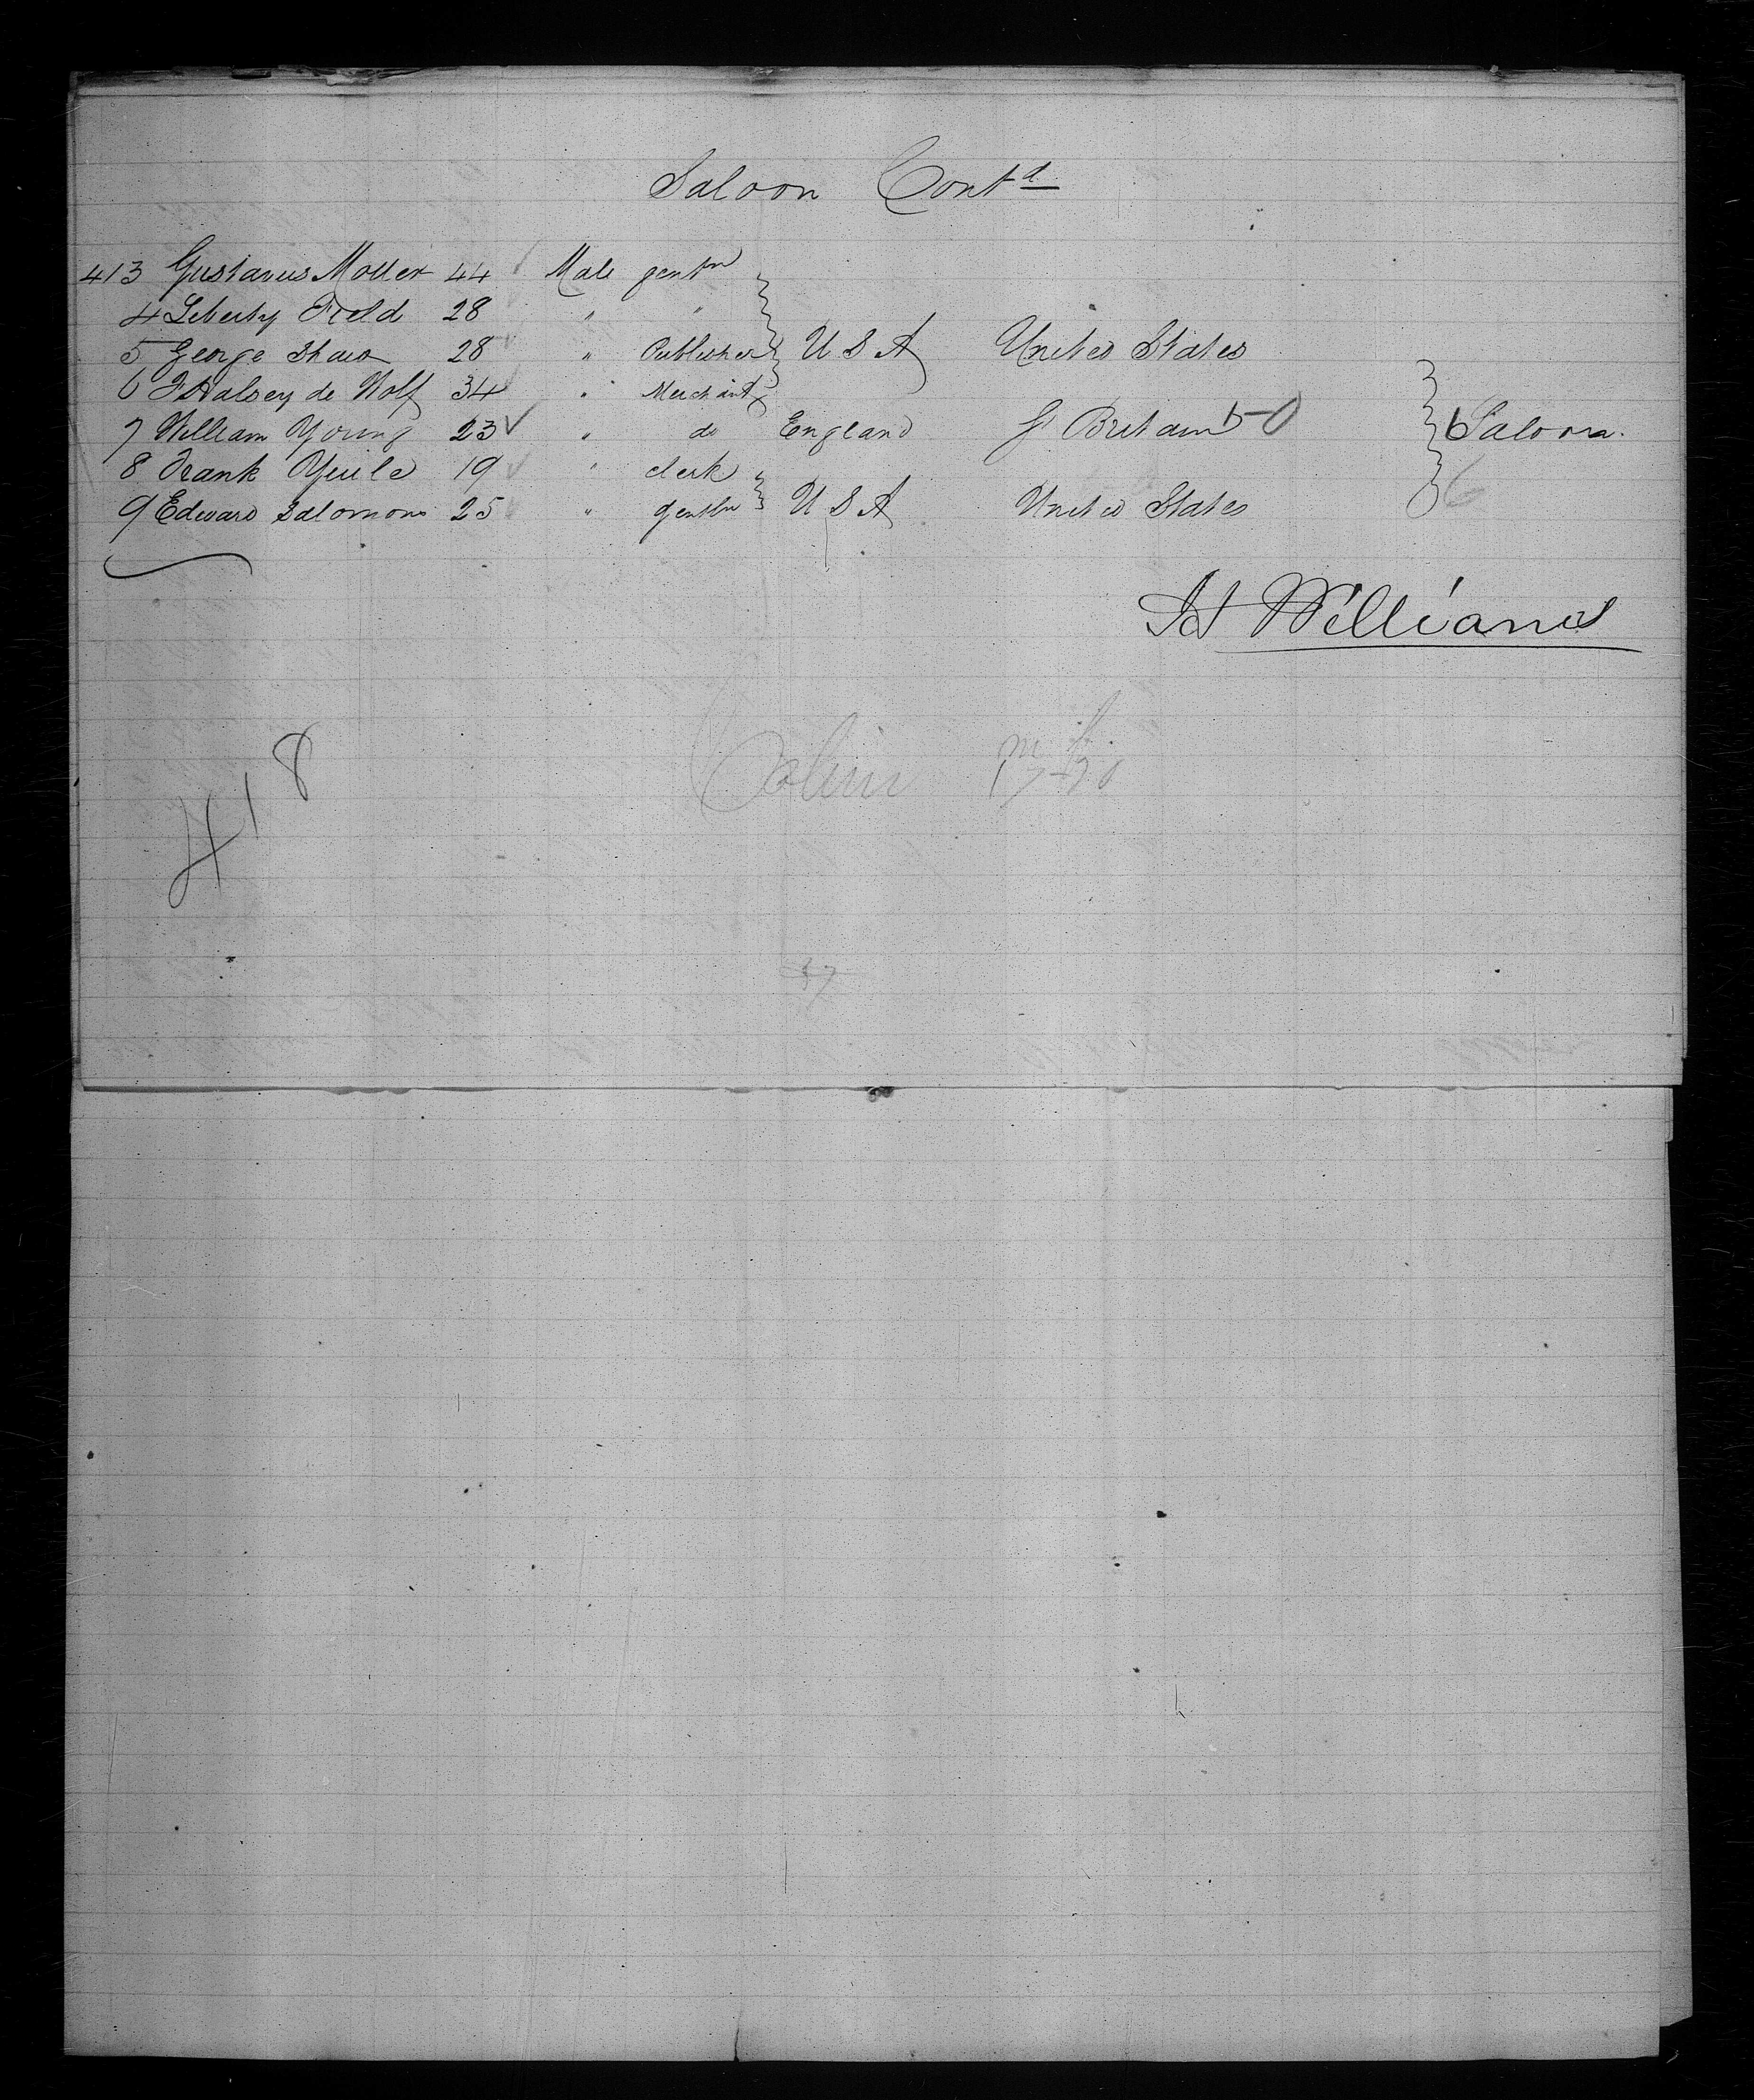 Saloon Contd
413 Gustavus Moller 44 Male gentn
4 Liberty Field 28 " "
5 George Shaw 28 " Publisher U S A United States
6 F Halsey de Wolf 34 " Merchant
7 William Young 23 ✓ " do England Gt Britain 50 Saloon.
8 Frank Yuile 19 " clerk
9 Edward Salomons 25 " gentln U S A United States 6
Williams
418